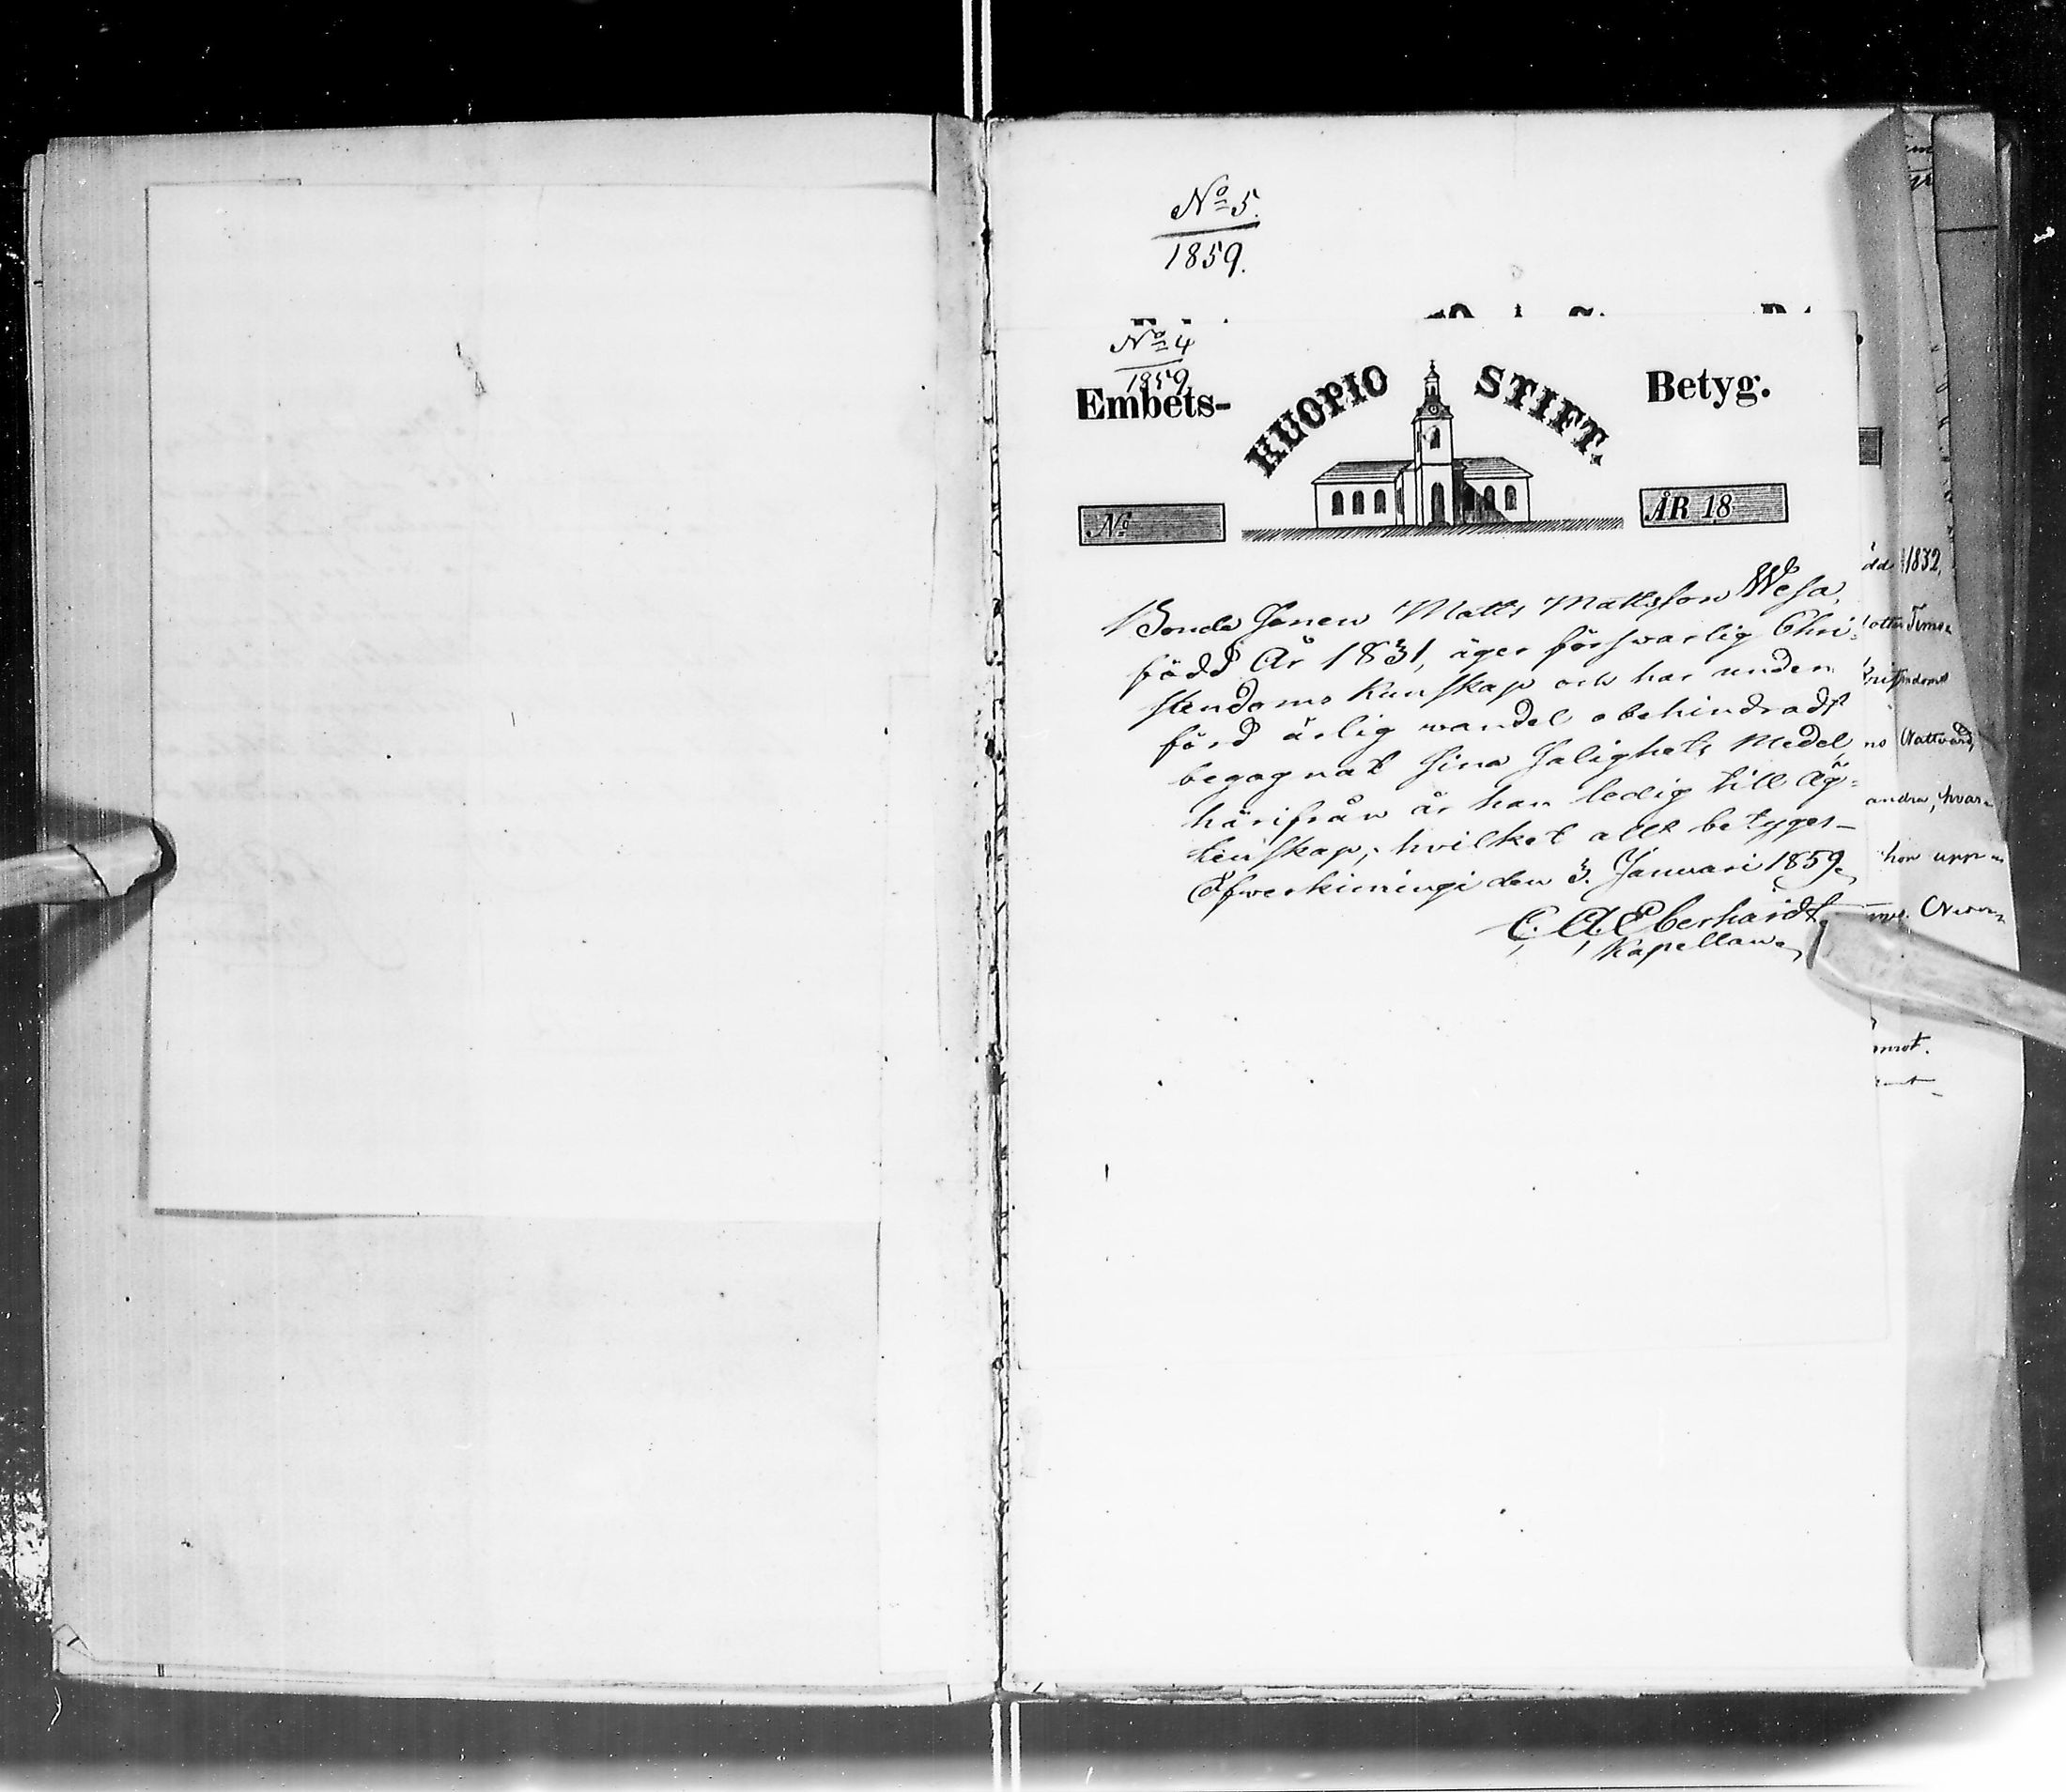 No 5.
1859.
No 4
1859.
Embets- KUOPIO STIFT. Betyg.
No
ÅR 18
Bonde Sonen Matts Mattsson Wesa,
född År 1831, äger förswarlig Chri-
stendoms kunskap och har under
förd ärlig wandel obehindradt
begagnat sina Salighets Medel,
härifrån är han ledig till Äg-
tenskap; hvilket allt betygar_
Öfwerkiminngi den 3. Januari 1859.
C. A. Eberhardt.
Kapellan.
1832,
Nattvard,
andra, hvar-
hon upp-